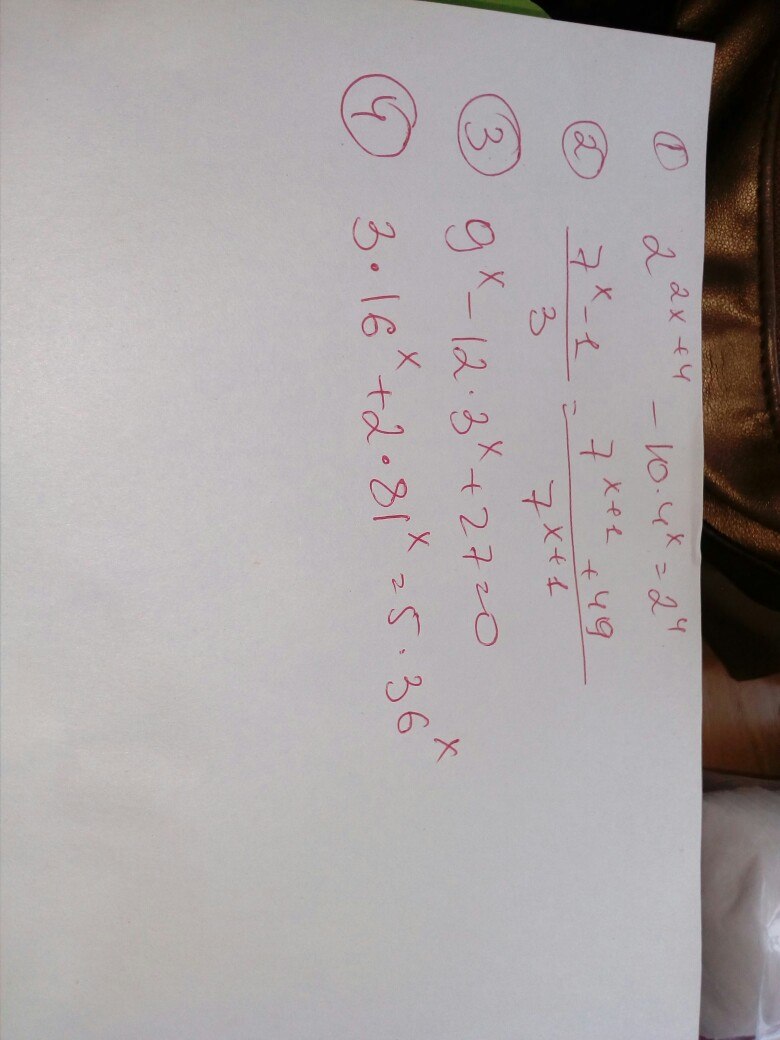 ① 2^{2x+4} - 10·4^x = 2^4
② \frac{7^x - 1}{3} = \frac{7^{x+1} + 49}{7^{x+1}}
③ 9^x - 12·3^x + 27 = 0
④ 3·16^x + 2·81^x = 5·36^x